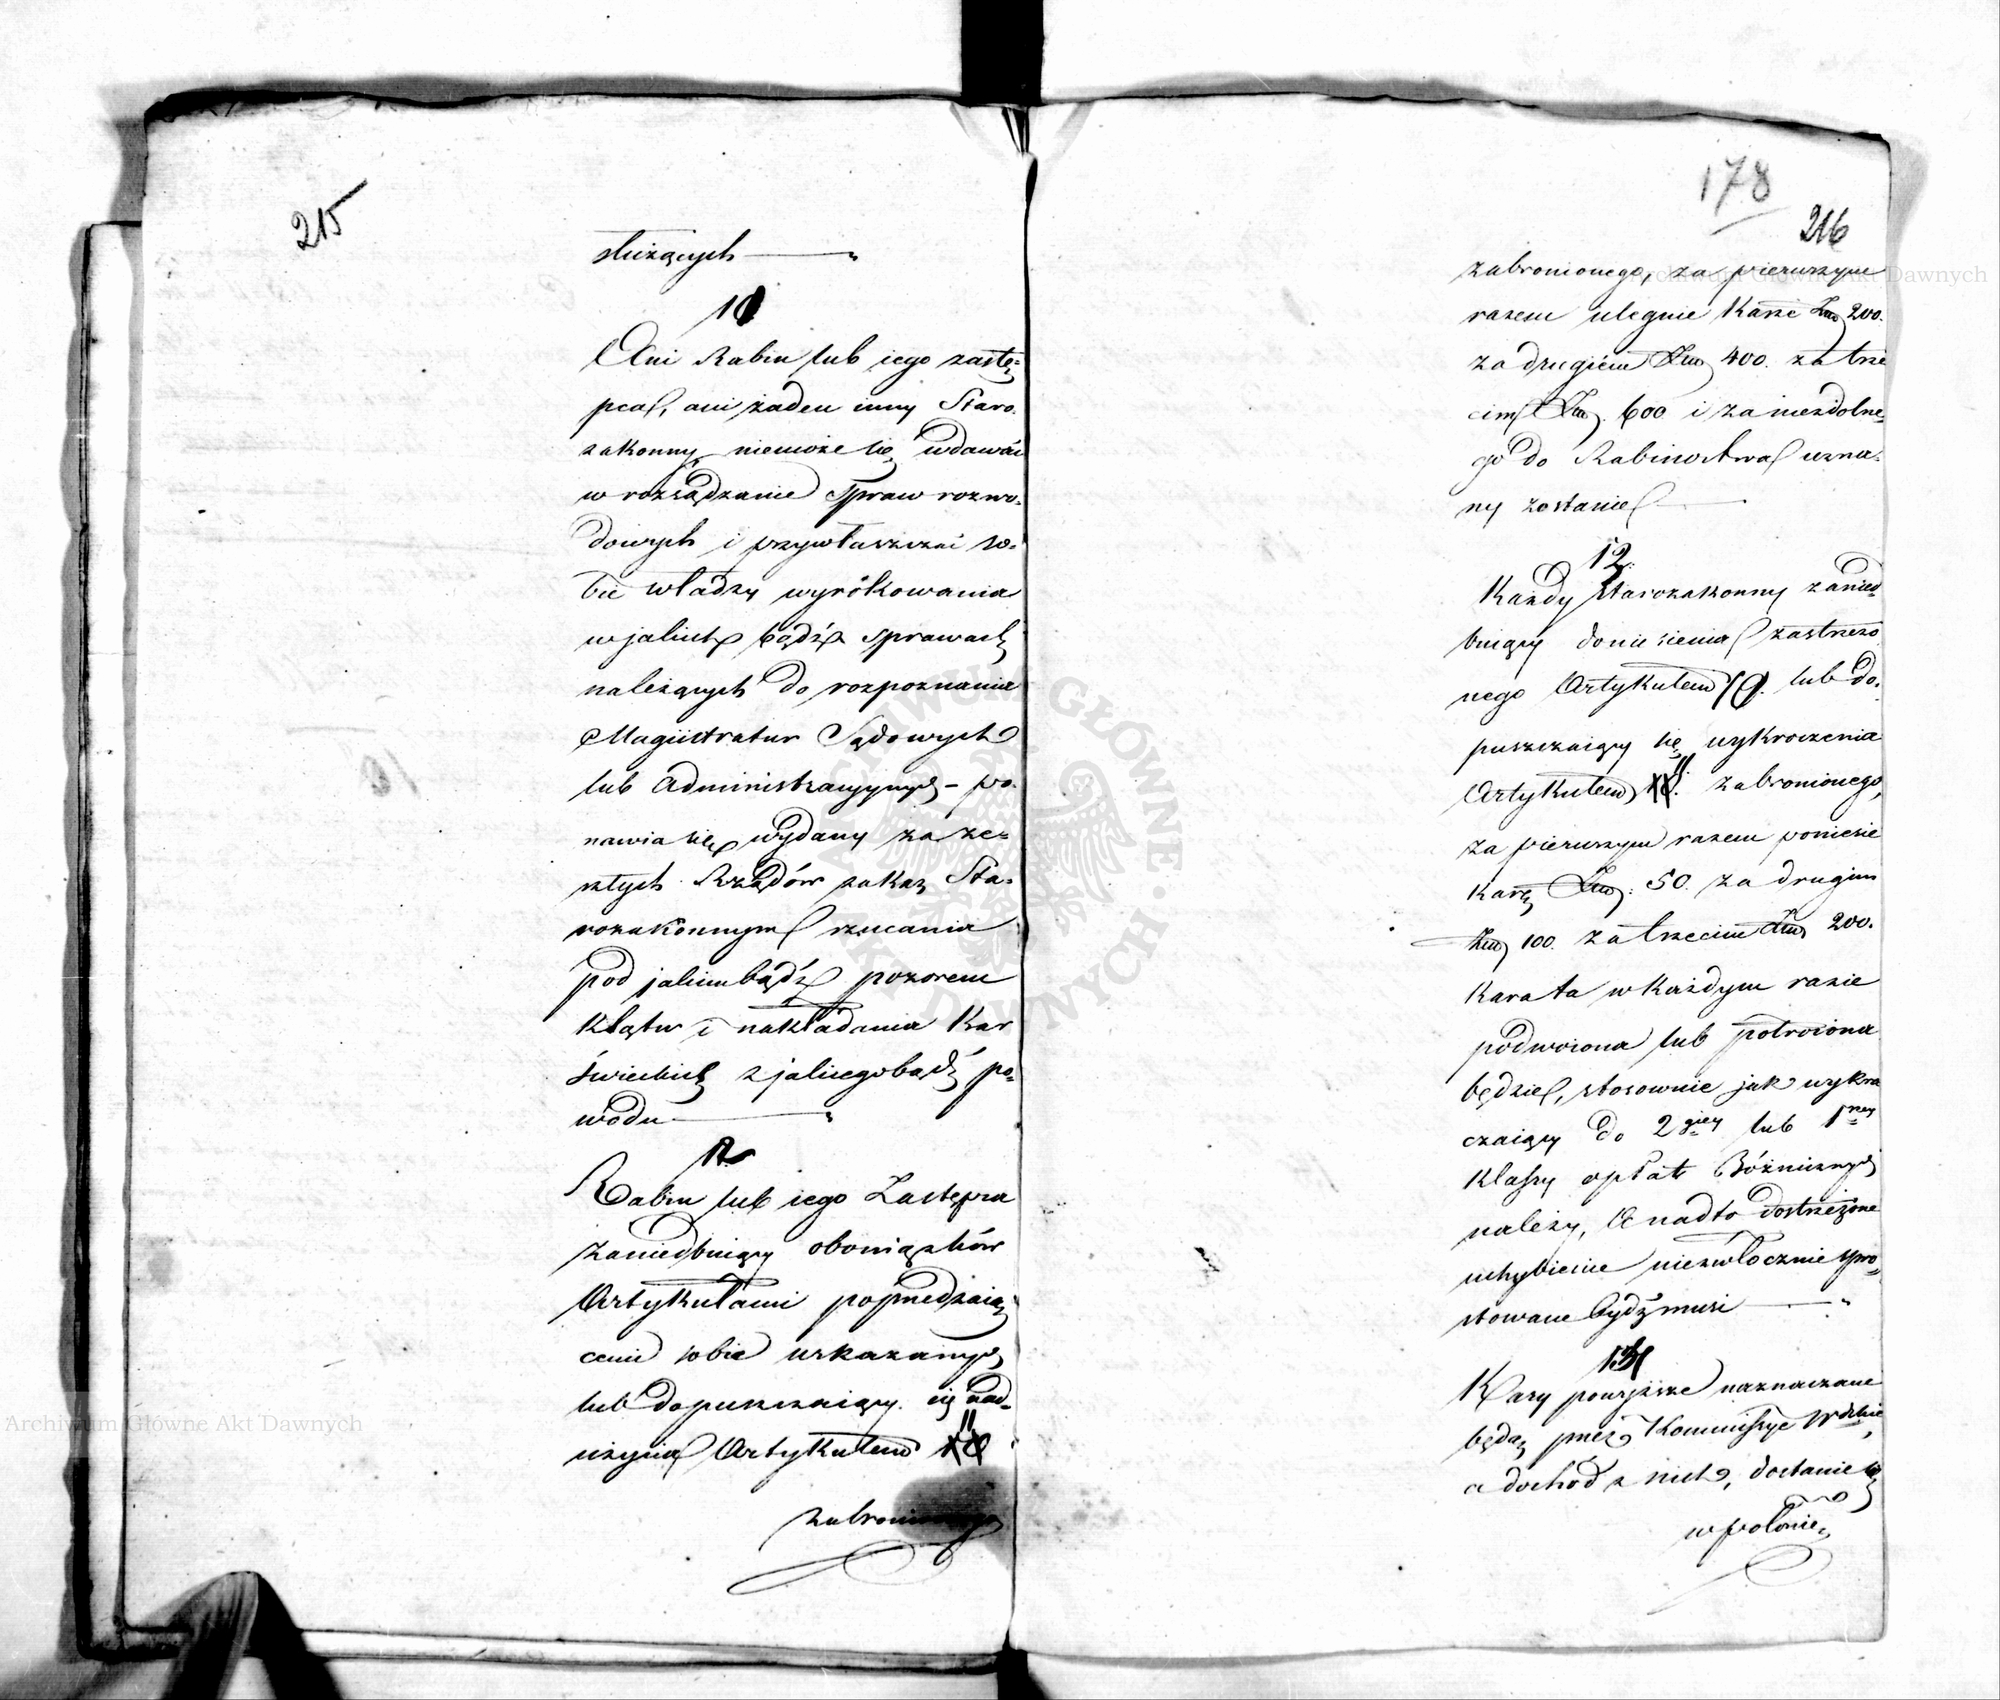 215
służących
Ani Rabin lub iego zastę-
pca, ani żaden inny Staro-
zakonny niemoże się wdawać
w rozsądzanie Spraw rozwo-
dowych i przywłaszczać so-
bie władzy wyrokowania
w jakich bądź sprawach
należących do rozpoznania
Magistratur Sądowych
lub Administracyjnych – po-
nawia się wydany za ze-
szłych Rządów zakaz Sta-
rozakonnym rzucania
pod jakim bądź pozorem
klątw i nakładania Kar
świeckich z jakiegobądź po-
wodu
Rabin lub iego Zastępca
Zaniedbuiący obowiązków
Artykułami poprzedzaią-
cemi sobie wskazanych
lub dopuszczaiący się nad-
użycia Artykułem 11
zabronionego
178
216
zabronionego, za pierwszym
razem ulegnie Karze Złp 200.
za drugiem Złp 400. za trze
cim Złp. 600 i za niezdolne-
go do Rabinostwa uzna-
ny zostanie
12.
Każdy Starozakonny zanied-
buiący doniesienia zastrzeżo
nego Artykułem lub do-
puszczaiący się wykroczenia
Artykułem 11. zabronionego,
za pierwszym razem poniesie
Karę Złp: 50. za drugim
Złp 100. za trzecim Złp 200.
Kara ta w każdym razie
podwoiona lub potroiona
będzie, stosownie jak wykra
czaiący do 2giey lub 1szey
klassy opłat Bóżniczych
należy, A nadto dostrzeżone
uchybienie niezwłocznie spro-
stowane bydź musi
13
Kary powyższe naznaczane
będą przez Kommissye Wdzkie,
a dochód z nich, dostanie się
w połowie
Archiwum Główne Akt Dawnych
Archiwum Główne Akt Dawnych
ARCHIWUM GŁÓWNE AKT DAWNYCH